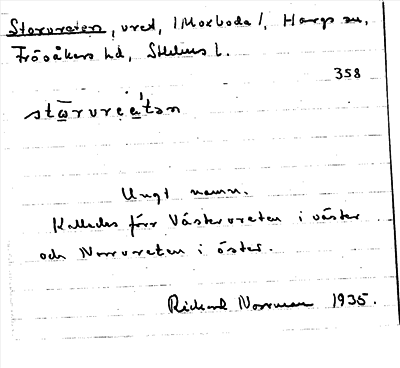 Storvreten, vret, /Moxboda/, Hargs sn,
Frösåkers hd, Sthlms l.
358
stωrvreátən
Ungt namn.
Kallades förr Västervreten i väster
och Norrvreten i öster.
Rickard Norrman 1935.